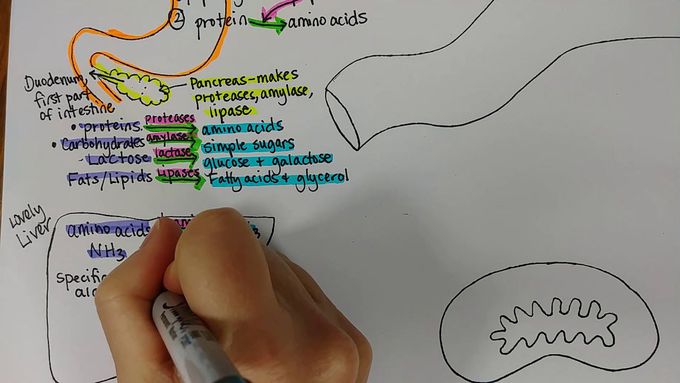 ② protein → amino acids
Duodenum, first part of intestine
Pancreas-makes
proteases, amylase,
lipase
• proteins Proteases → amino acids
• Carbohydrates amylase → simple sugars
- Lactose lactase → glucose + galactose
Fats/Lipids Lipases → Fatty acids + glycerol
Lovely
Liver
amino acids
NH3